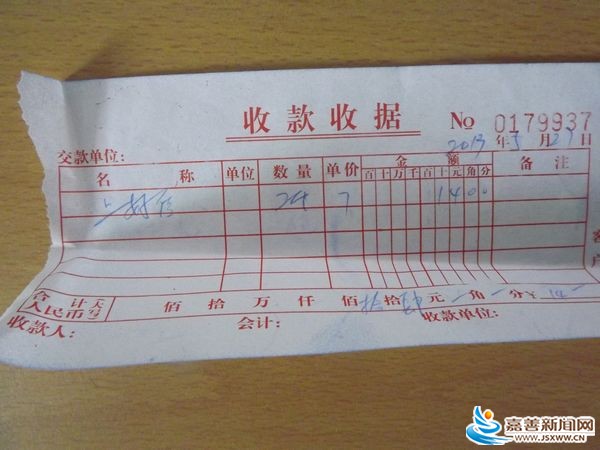 收款收据 No 0179937
2013年5月29日
交款单位:
名 称 单位 数量 单价 金 额 备 注
百 十 万 千 百 十 元 角 分
7 1400
客
户
合 计 人民币 大写 佰 拾 万 仟 佰 拾 肆 元 角 分 ¥ 14
收款人: 会计: 收款单位:
嘉善新闻网
WWW.JSXWW.CN